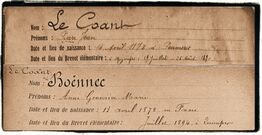 Nom : Le Coant
Prénoms : Jean
Date et lieu de naissance : 16 Août 1872 à
Date et lieu du Brevet élémentaire : Juillet
Le Coant
Nom : Boënnec
Prénoms : Anne Marie
Date et lieu de naissance : 15 avril 1878 à
Date et lieu du Brevet élémentaire : Juillet 1894 à Quimper